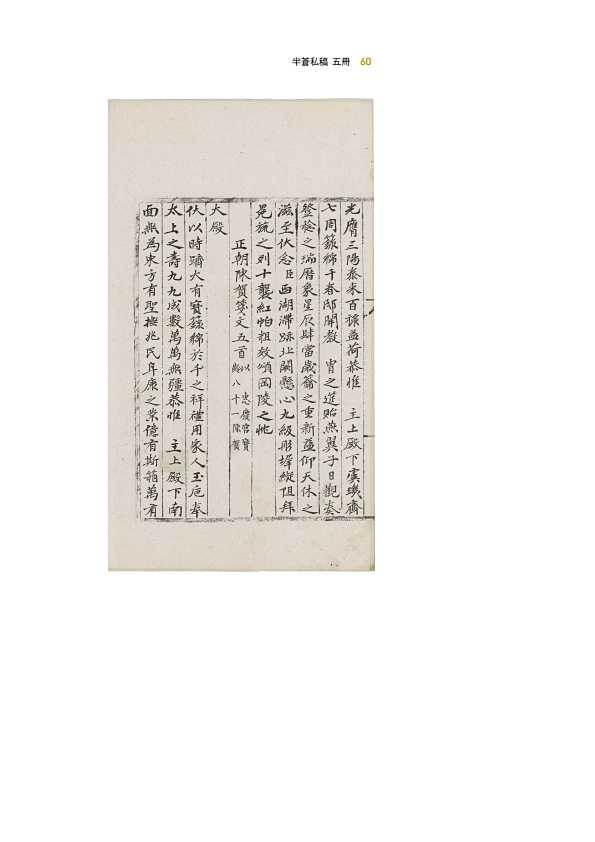 半蒼私稿 五冊 60
光膺三陽泰來百祿益荷恭惟 主上殿下虞璣齊
七周籙綿千春邸開教 胄之進貽燕翼子日觀奏
登稔之瑞曆象星辰肆當歲籥之重新益仰天休之
滋至伏念臣西湖滯跡北闕懸心九級彤墀縱阻拜
冕旒之列十襲紅帕粗效頌岡陵之忱
正朝陳賀箋文五首以忠廣官寶
齡八十一陳賀
大殿
伏以時躋大有寶籙綿於千之祥禮用家人玉卮奉
太上之壽九九成數萬萬無疆恭惟 主上殿下南
面無為東方有聖撫兆民年康之業億有斯箱萬有